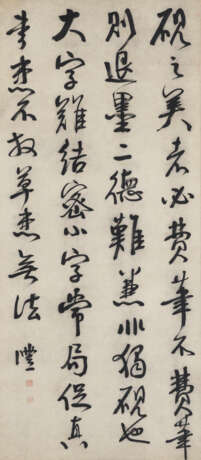 硯之美者必費筆不費筆
則退墨二德難兼非獨硯也
大字難結密小字常局促真
書患不放草患無法 澧